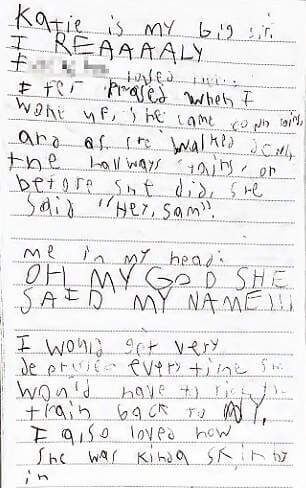 Katie is my big sis.
I REAAAALY
I loved
when I
woke up, she came down
and as she walked down
the hallways stairs, or
before she did, she
said "Hey, Sam".
me in my head:
OH MY GOD SHE
SAID MY NAME!!!
I would get very
every time she
would have to
train back to NY.
I also loved how
she was kinda
in